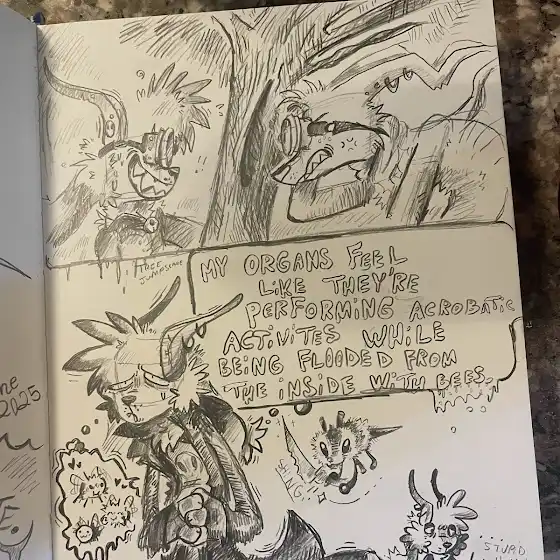 TREE
JUMPSCARE
MY ORGANS FEEL
LIKE THEY'RE
PERFORMING ACROBATIC
ACTIVITES WHILE
BEING FLOODED FROM
THE INSIDE WITH BEES.
2025